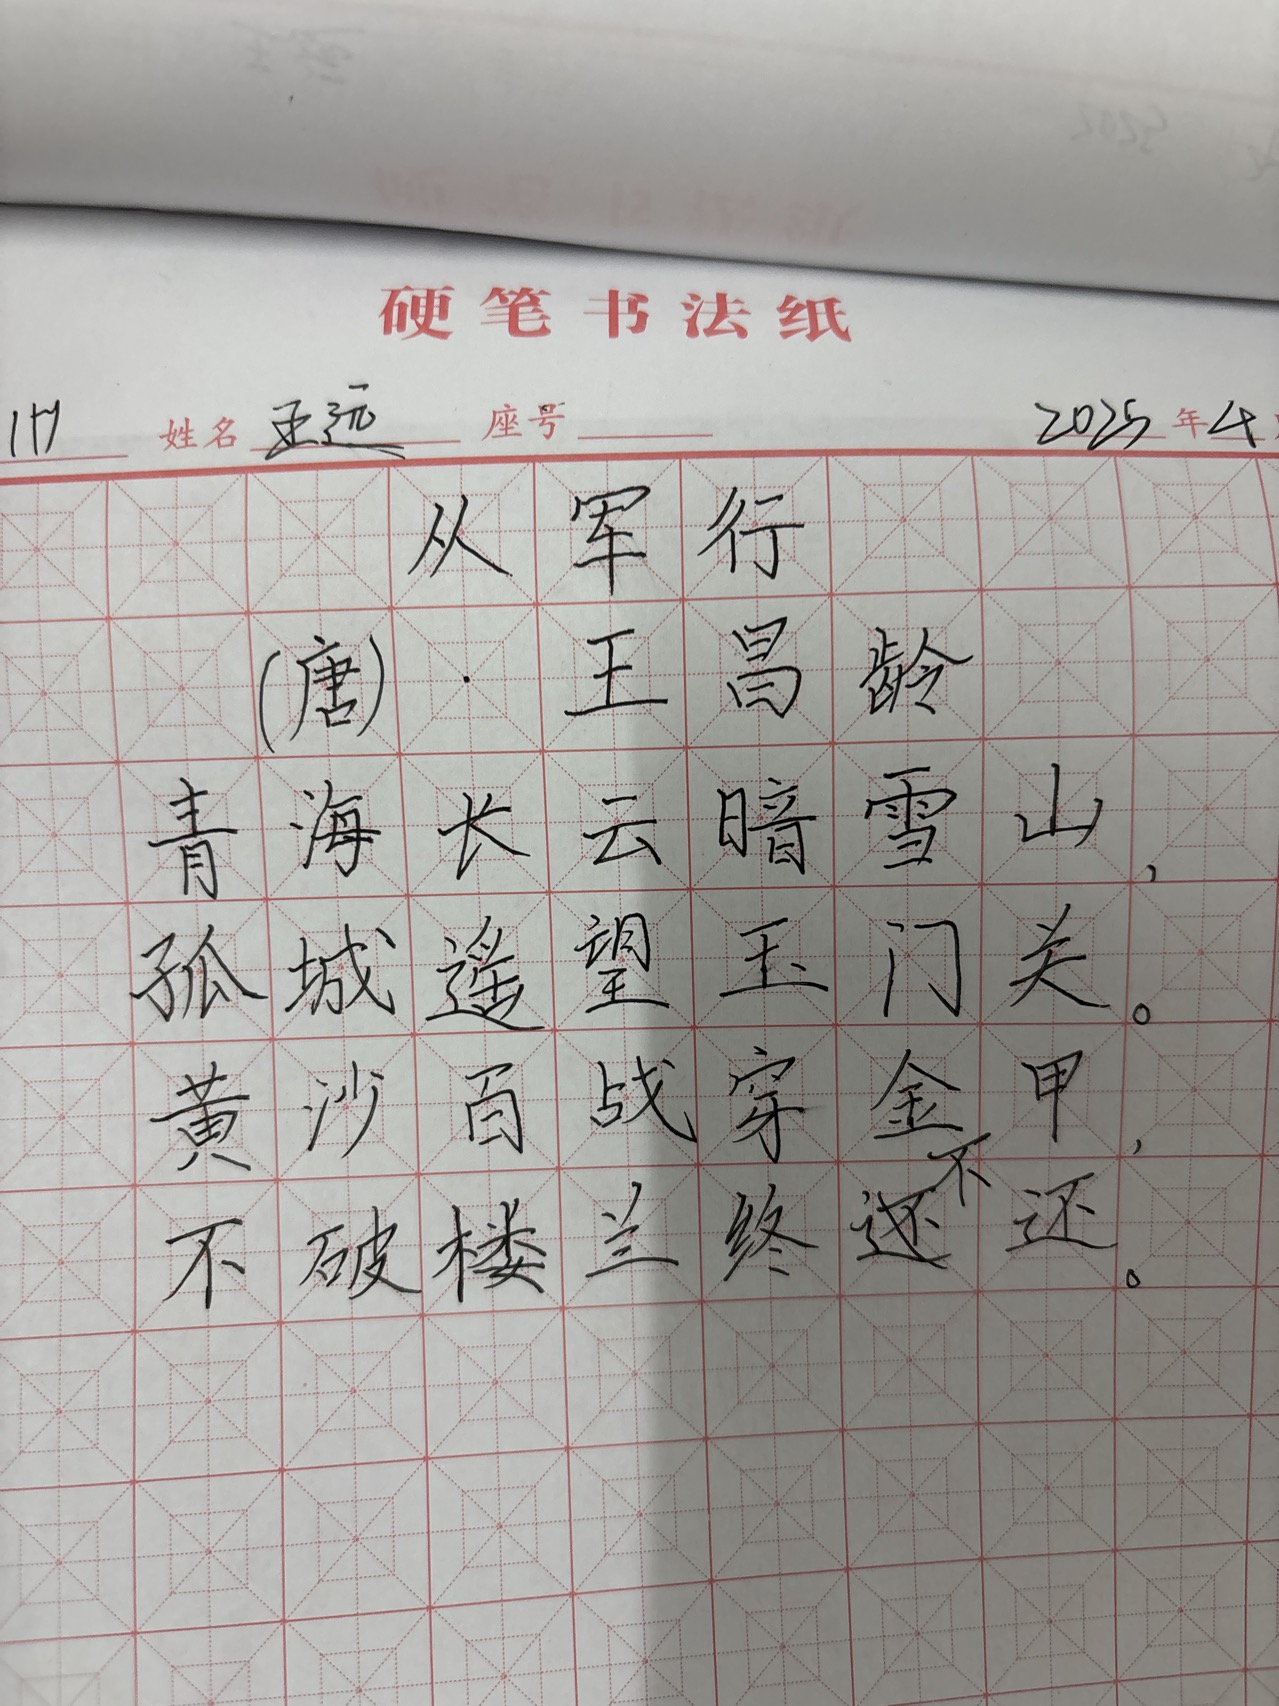 硬笔书法纸
姓名 王远 座号 2025年4
从军行
(唐)·王昌龄
青海长云暗雪山,
孤城遥望玉门关。
黄沙百战穿金甲,
不破楼兰终不还。